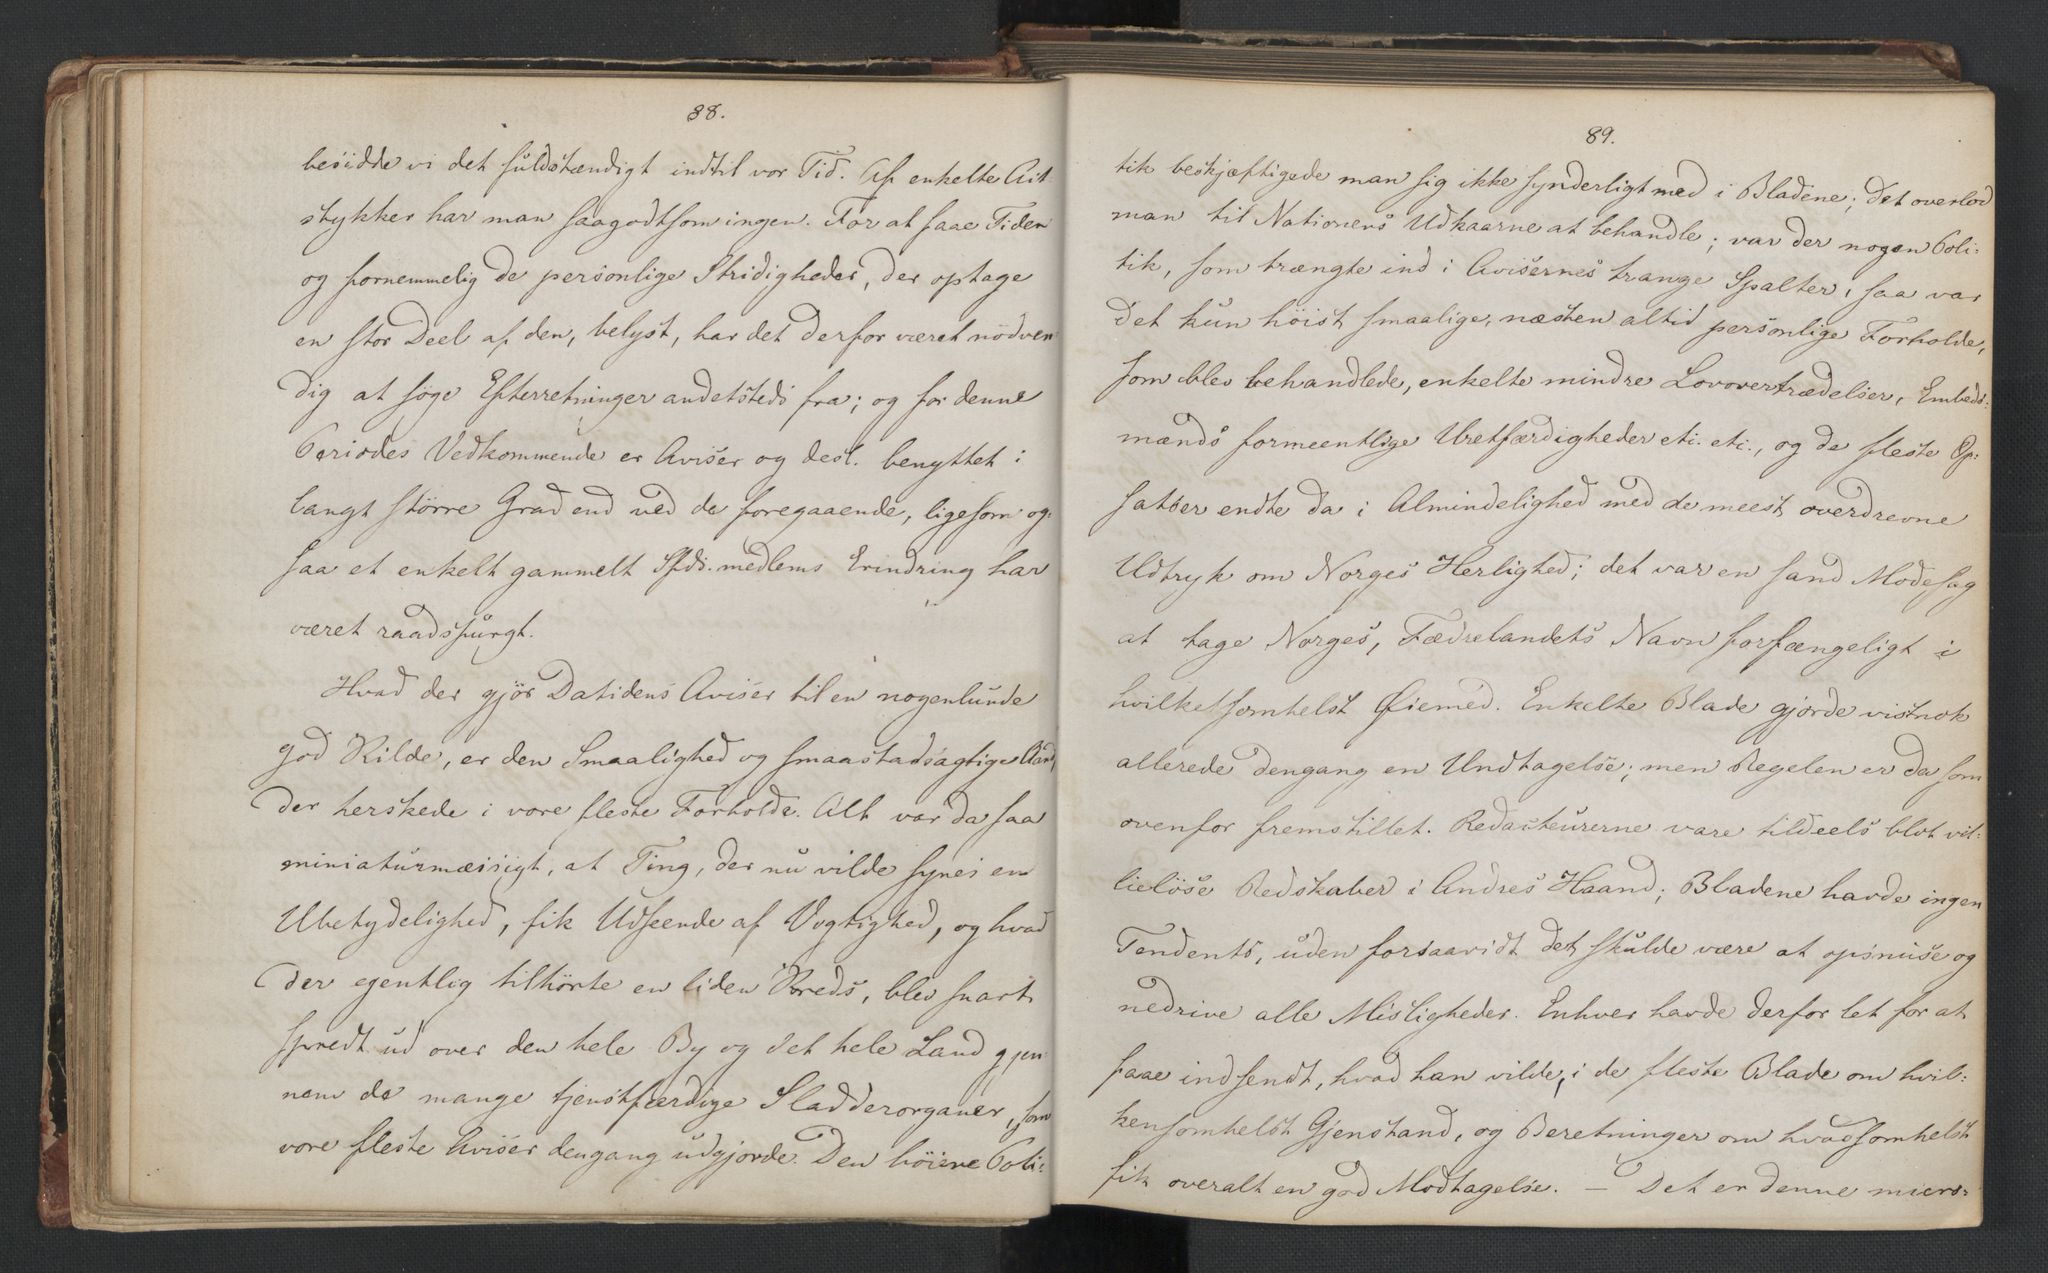 88.
besidde vi det fuldstændigt indtil vor Tid. Af enkelte Akt-
stykker har man saagodtsom ingen. For at faae Tiden
og fornemmelig de personlige Stridigheder, der optage
en stor Deel af den, belyst, har det derfor været nödven-
dig at söge Efterretninger andetsteds fra; og for denne
Periodes Vedkommende er Aviser og desl. benyttet i
langt större Grad end ved de foregaaende, ligesom og-
saa et enkelt gammelt Sfds. medlems Erindring har
været raadspurgt.
Hvad der gjör Datidens Aviser til en nogenlunde
god Kilde, er den Smaalighed og smaastadsagtige Aand,
der herskede i vore fleste Forholde. Alt var da saa
miniaturmæssigt, at Ting, der nu vilde synes en
Ubetydelighed, fik Udseende af Vigtighed, og hvad
der egentlig tilhörte en liden Kreds, blev snart
spredt ud over den hele By og det hele Land gjen-
nem de mange tjenstfærdige Sladderorganer, som
vore fleste Aviser dengang udgjorde. Den höiere Poli-
89.
tik beskjæftigede man sig ikke synderligt med i Bladene; det overlod
man til Nationens Udkaarne at behandle; var der nogen Poli-
tik, som trængte ind i Avisernes trange Spalter, saa var
det kun höist smaalige, næsten altid personlige Forholde,
som blev behandlede, enkelte mindre Lovovertrædelser, Embeds-
mænds formeentlige Uretfærdigheder etc. etc., og de fleste Op-
satser endte da i Almindelighed med de meest overdrevne
Udtryk om Norges Herlighed; det var en sand Modesag
at tage Norges, Fædrelandets Navn forfængeligt i
hvilketsomhelst Øiemed. Enkelte Blade gjorde vistnok
allerede dengang en Undtagelse; men Regelen er da som
ovenfor fremstillet. Redacteurerne vare tildeels blot vil-
lielöse Redskaber i Andres Haand; Bladene havde ingen
Tendents, uden forsaavidt det skulde være at opsnuse og
nedrive alle Misligheder. Enhver havde derfor let for at
faae indsendt, hvad han vilde, i de fleste Blade om hvil-
kensomhelst Gjenstand, og Beretninger om hvadsomhelst
fik overalt en god Modtagelse. — Det er denne micro-